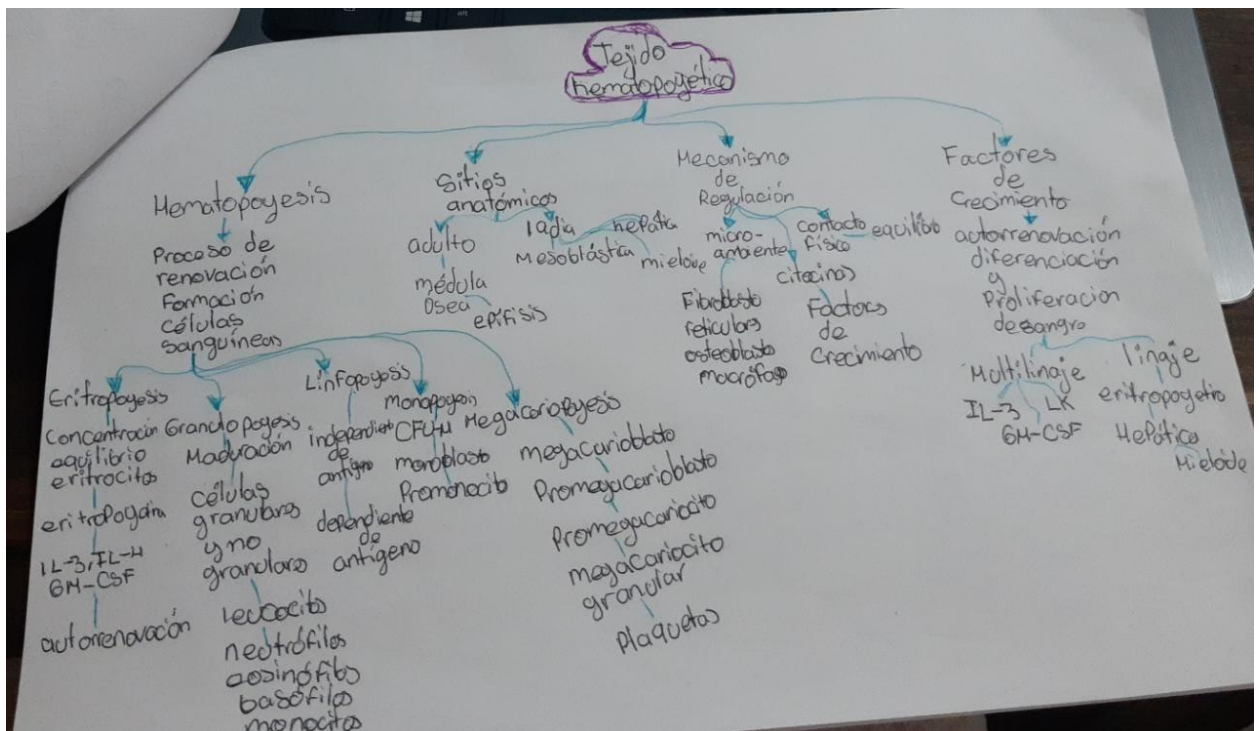 Tejido
hematopoyético
Hematopoyesis
Proceso de
renovación
Formación
células
sanguíneas
Eritropoyesis
Concentración
equilibrio
eritrocitos
eritropoyetina
IL-3, IL-4
GM-CSF
autorrenovación
Granulopoyesis
Maduración
células
granulares
y no
granulares
Leucocitos
neutrófilos
eosinófilos
basófilos
monocitos
Linfopoyesis
independiente
de
antígeno
dependiente
de
antígeno
monopoyesis
CFU-M
monoblasto
Promonocito
Megacariopoyesis
megacarioblasto
Promegacarioblasto
Promegacariocito
megacariocito
granular
Plaquetas
Sitios
anatómicos
adulto
médula
Osea
epífisis
Mesoblástica
hepática
mieloide
Mecanismo
de
Regulación
micro-
ambiente
Fibroblasto
reticulares
osteoblasto
macrófago
citocinas
Factores
de
Crecimiento
contacto
físico
equilibrio
Factores
de
Crecimiento
autorrenovación
diferenciación
y
Proliferacion
de sangre
Multilinaje
IL-3
LK
GM-CSF
linaje
eritropoyetio
Hepático
Mieloide